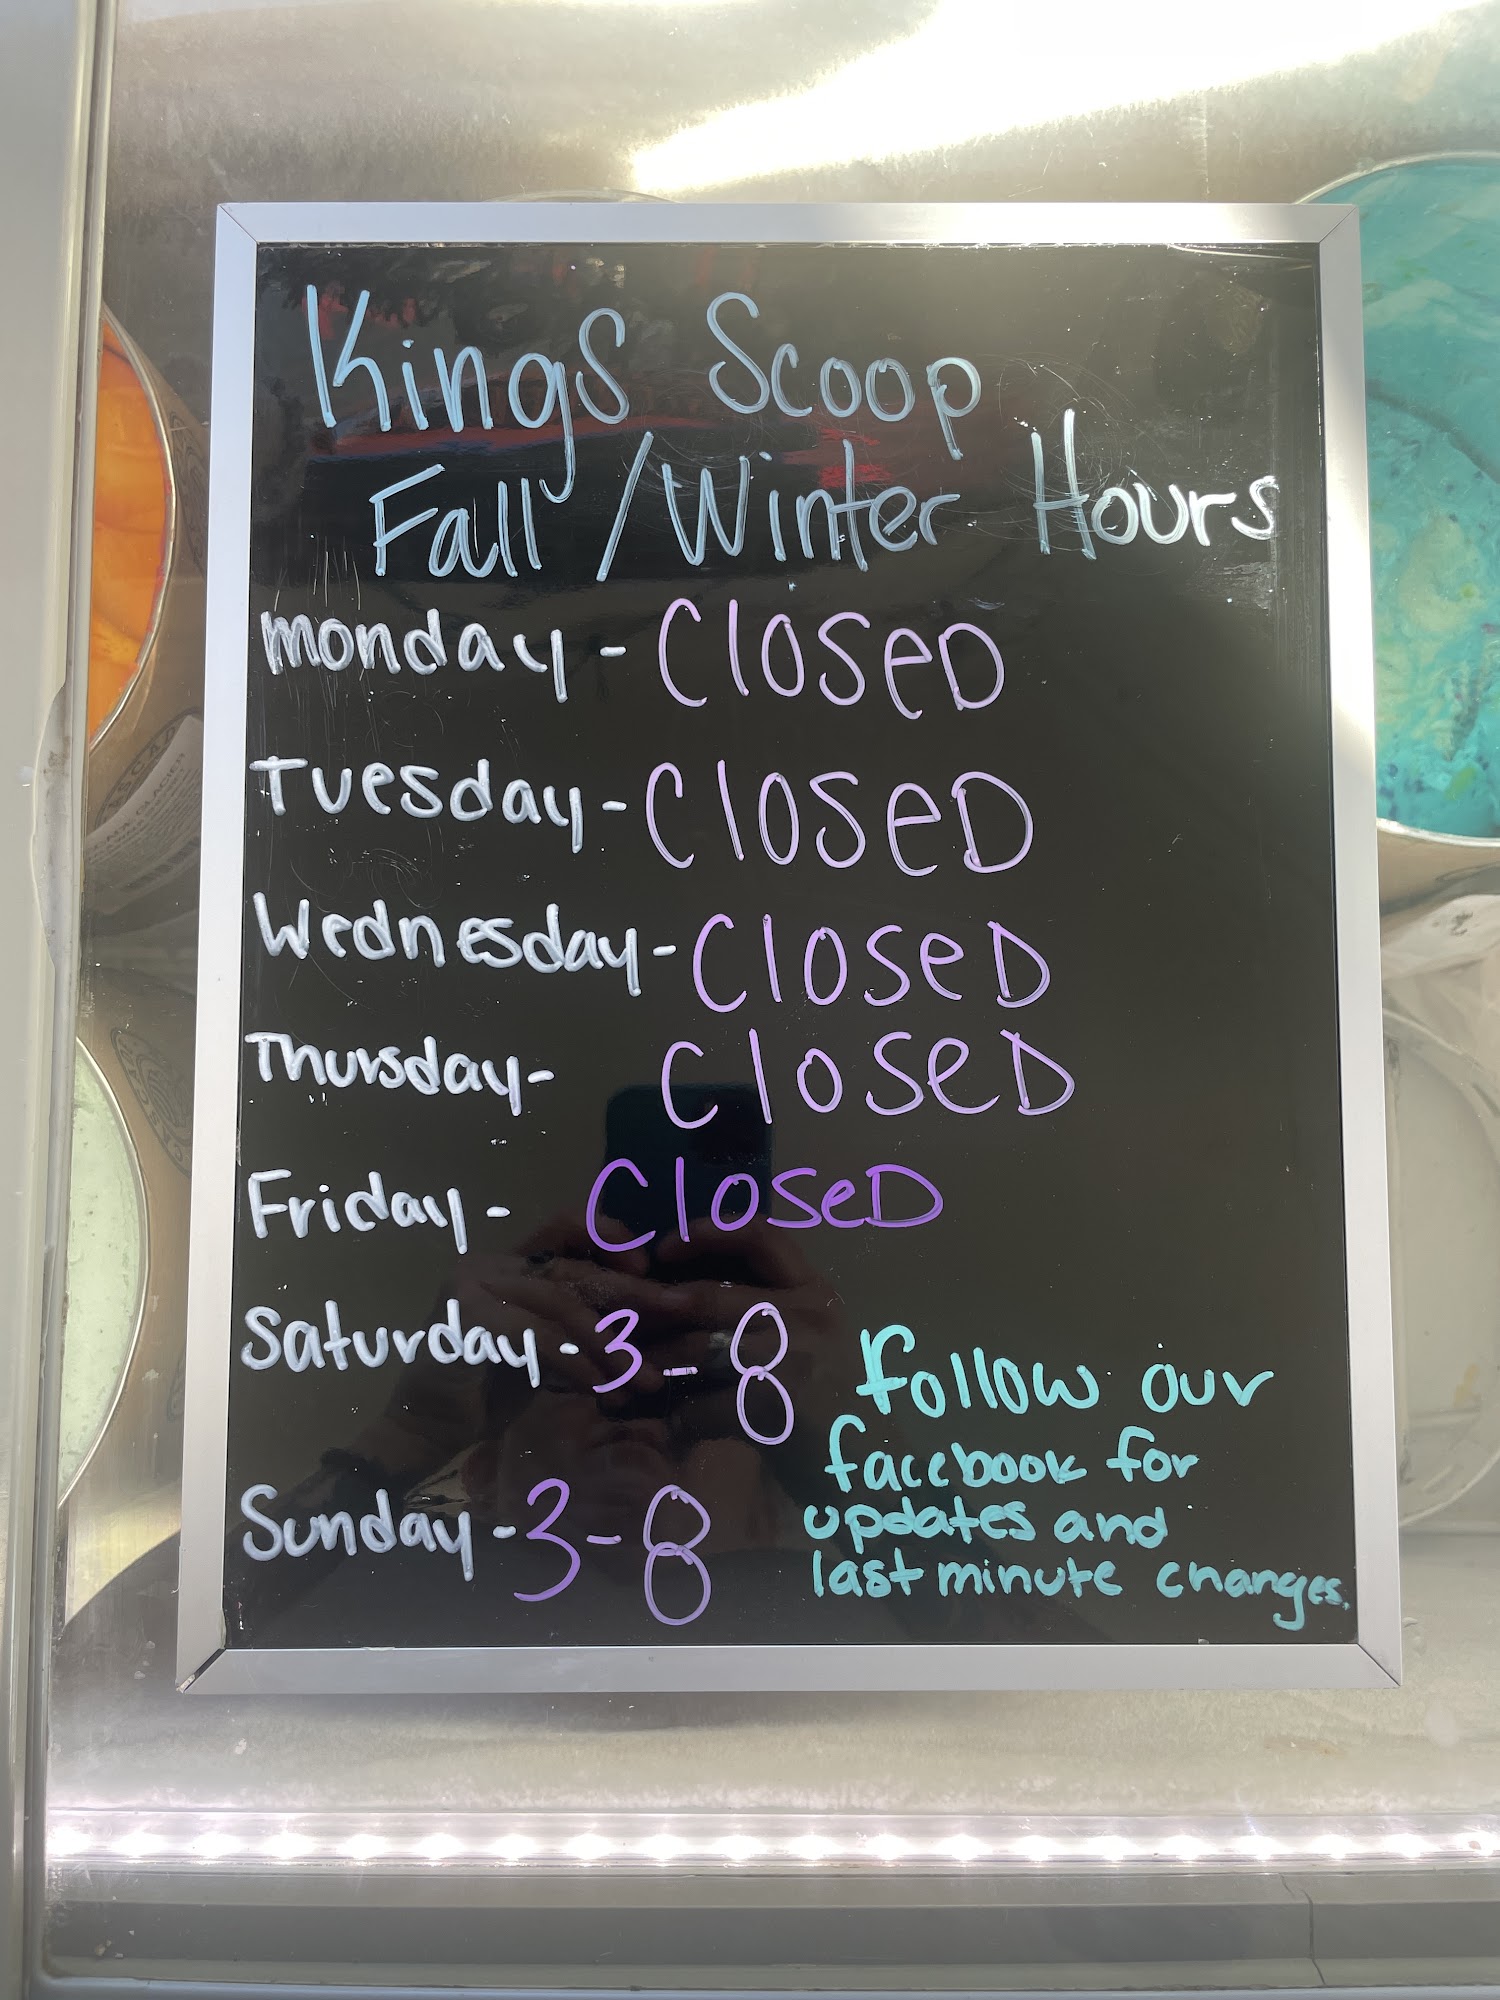 Kings Scoop
Fall/Winter Hours
Monday - Closed
Tuesday - Closed
Wednesday - Closed
Thursday - Closed
Friday - Closed
Saturday - 3-8
Sunday - 3-8
Follow our
facebook for
updates and
last minute changes.